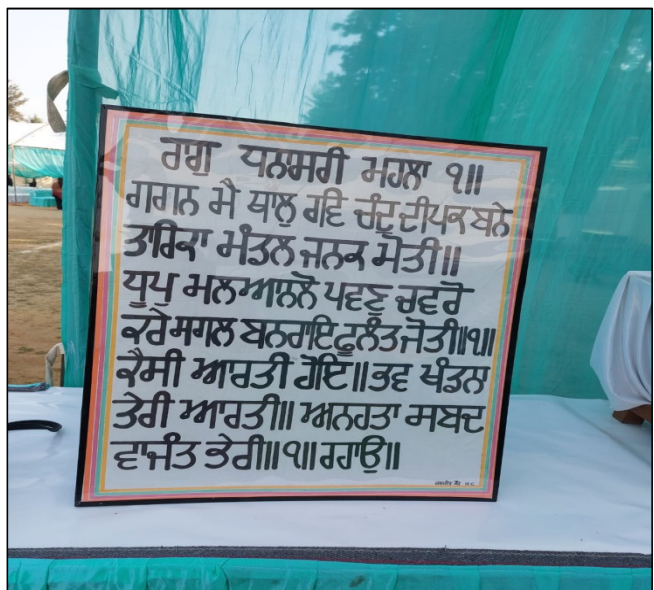 ਰਾਗੁ ਧਨਾਸਰੀ ਮਹਲਾ ੧॥
ਗਗਨ ਮੈ ਥਾਲੁ ਰਵਿ ਚੰਦੁ ਦੀਪਕ ਬਨੇ
ਤਾਰਿਕਾ ਮੰਡਲ ਜਨਕ ਮੋਤੀ॥
ਧੂਪੁ ਮਲਆਨਲੋ ਪਵਣੁ ਚਵਰੋ
ਕਰੇ ਸਗਲ ਬਨਰਾਇ ਫੂਲੰਤ ਜੋਤੀ॥੧॥
ਕੈਸੀ ਆਰਤੀ ਹੋਇ॥ਭਵ ਖੰਡਨਾ
ਤੇਰੀ ਆਰਤੀ॥ ਅਨਹਤਾ ਸਬਦ
ਵਾਜੰਤ ਭੇਰੀ॥੧॥ ਰਹਾਉ॥